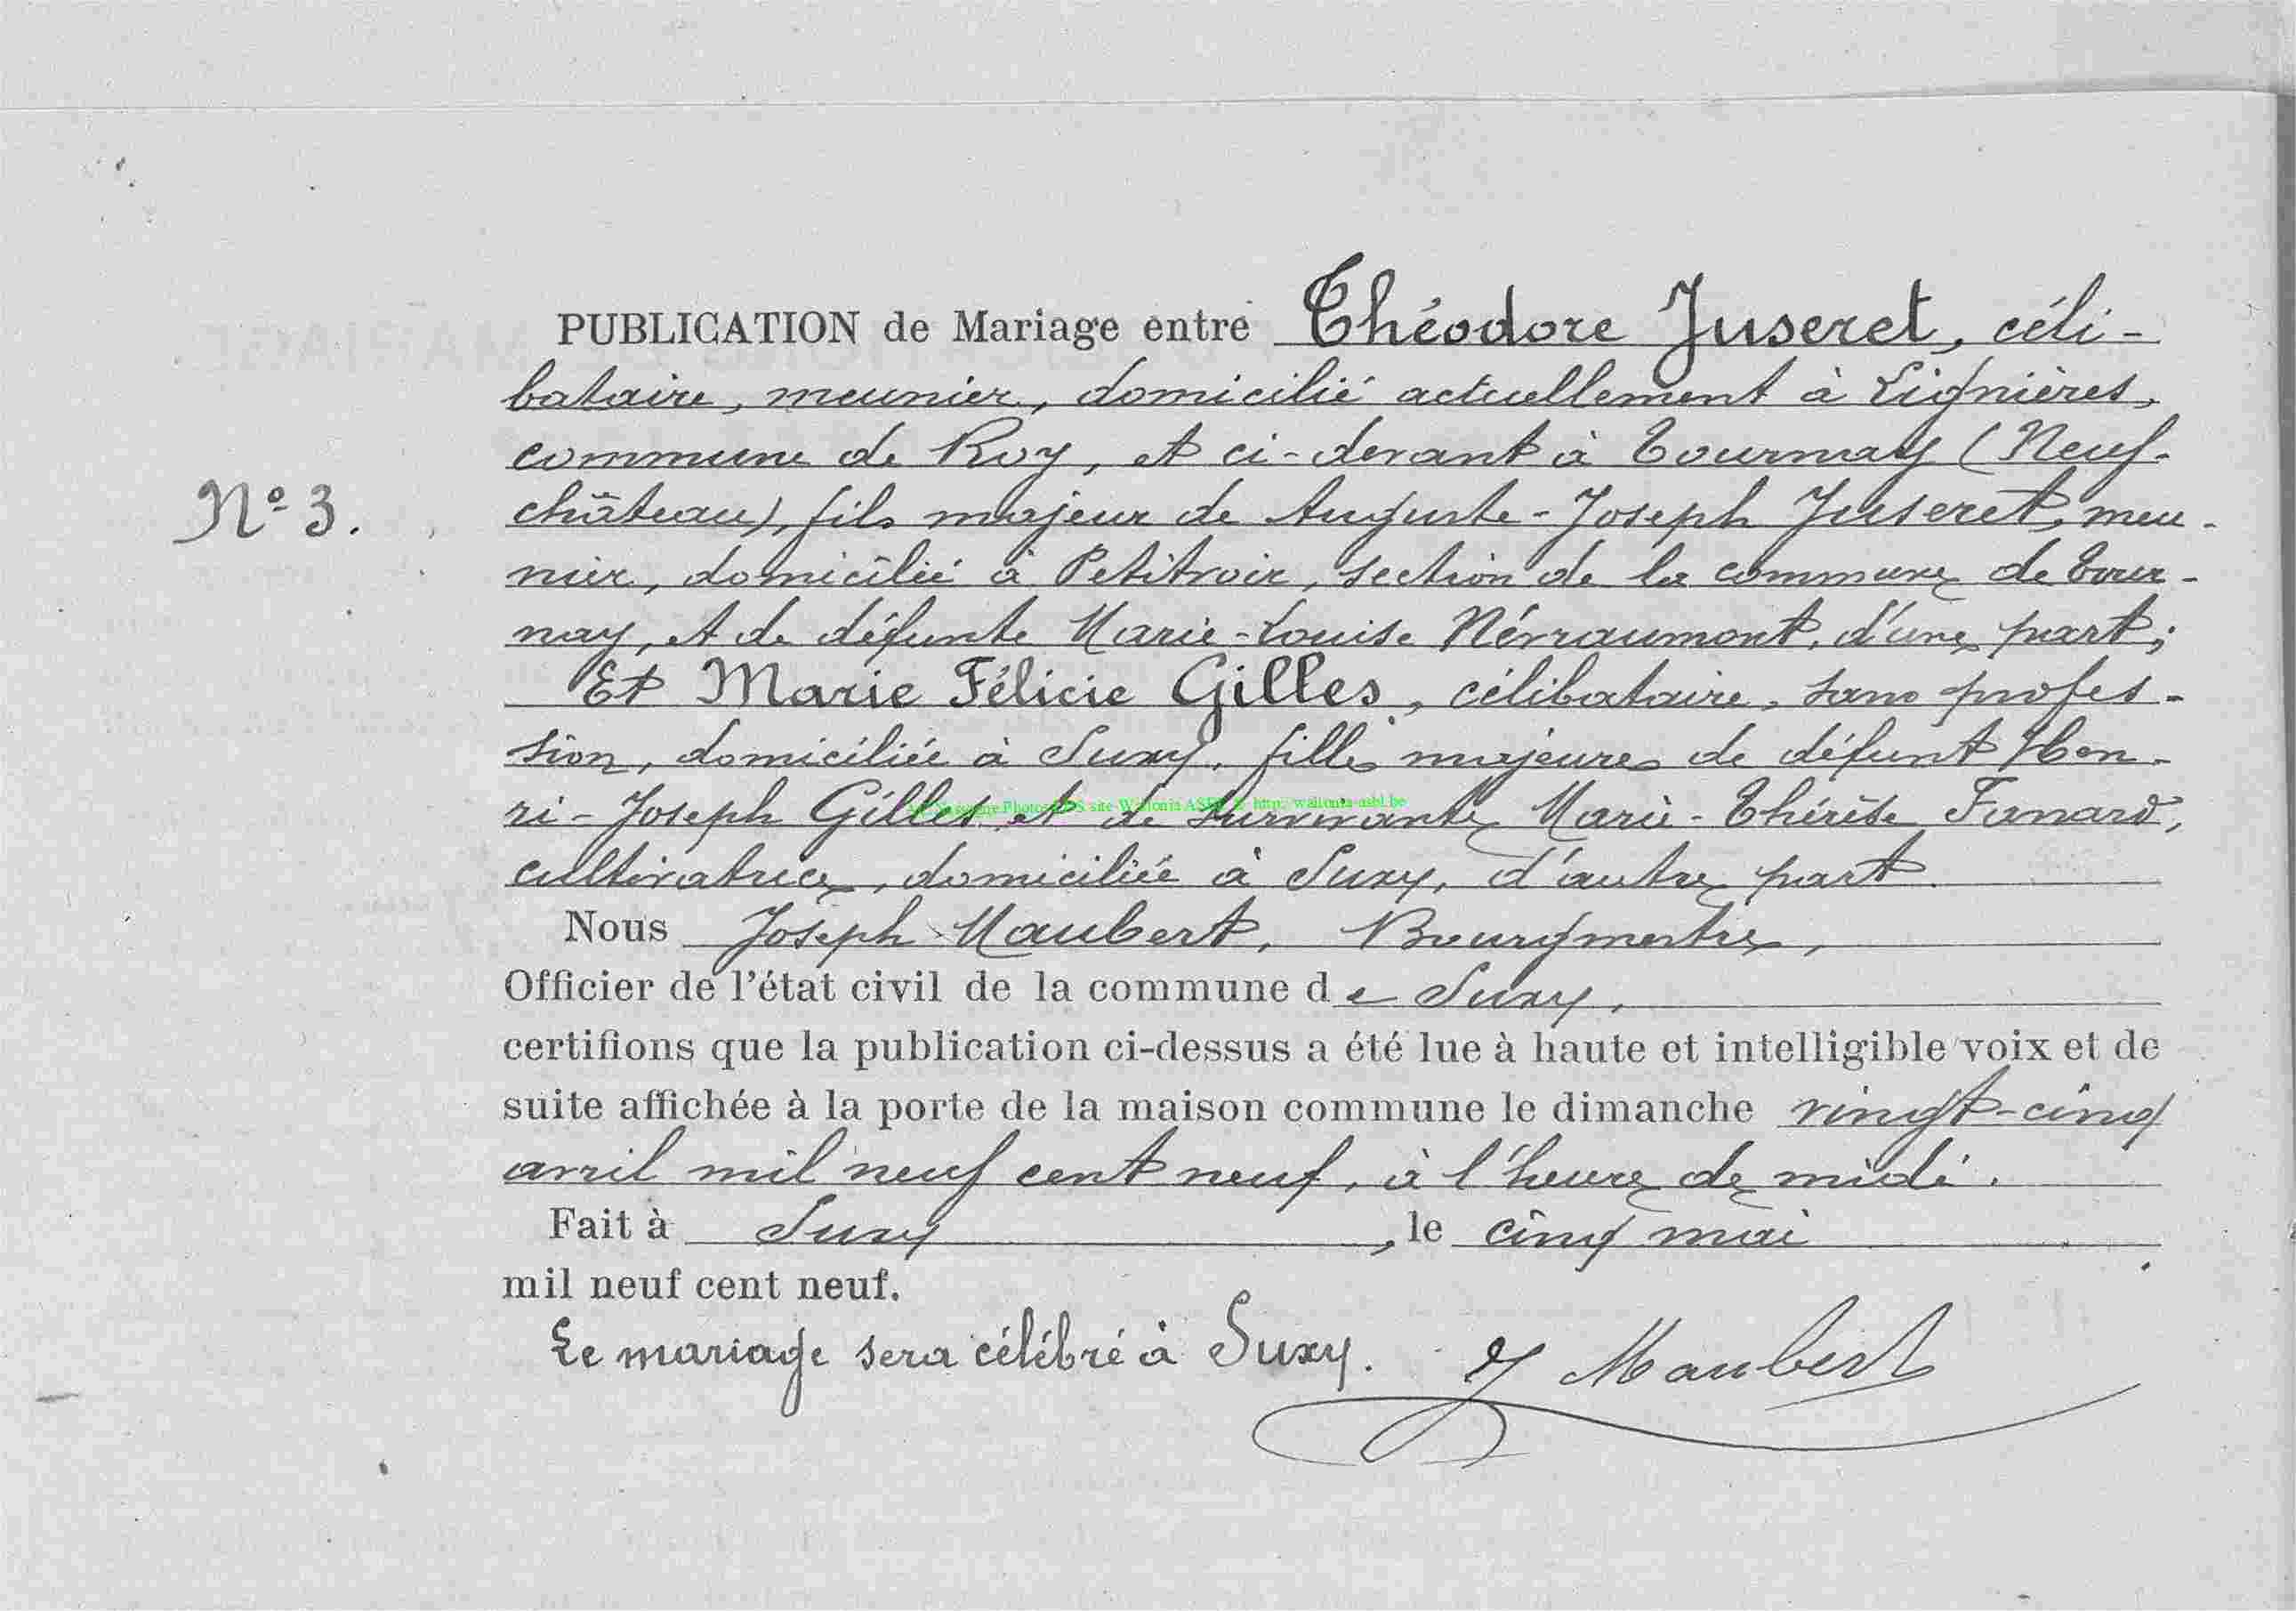 PUBLICATION de Mariage entre Théodore Juseret, céli-
bataire, meunier, domicilié actuellement à Lignières,
commune de Roy, et ci-devant à Tournay (Neuf-
N° 3.
château), fils majeur de Auguste-Joseph Juseret, meu-
nier, domicilié à Petitvoir, section de la commune de Tour-
nay, et de défunte Marie-Louise Névraumont, d'une part;
Et Marie Félicie Gilles, célibataire, sans profes-
sion, domiciliée à Suxy, fille majeure de défunt Hen-
ri-Joseph Gilles et de survivante Marie-Thérèse Fanard,
site Wallonia ASBL http: wallonia-asbl.be
cultivatrice, domiciliée à Suxy, d'autre part.
Nous Joseph Maubert, Bourgmestre,
Officier de l'état civil de la commune de Suxy,
certifions que la publication ci-dessus a été lue à haute et intelligible voix et de
suite affichée à la porte de la maison commune le dimanche vingt-cinq
avril mil neuf cent neuf, à l'heure de midi.
Fait à Suxy, le cinq mai
mil neuf cent neuf.
Le mariage sera célébré à Suxy. J Maubert